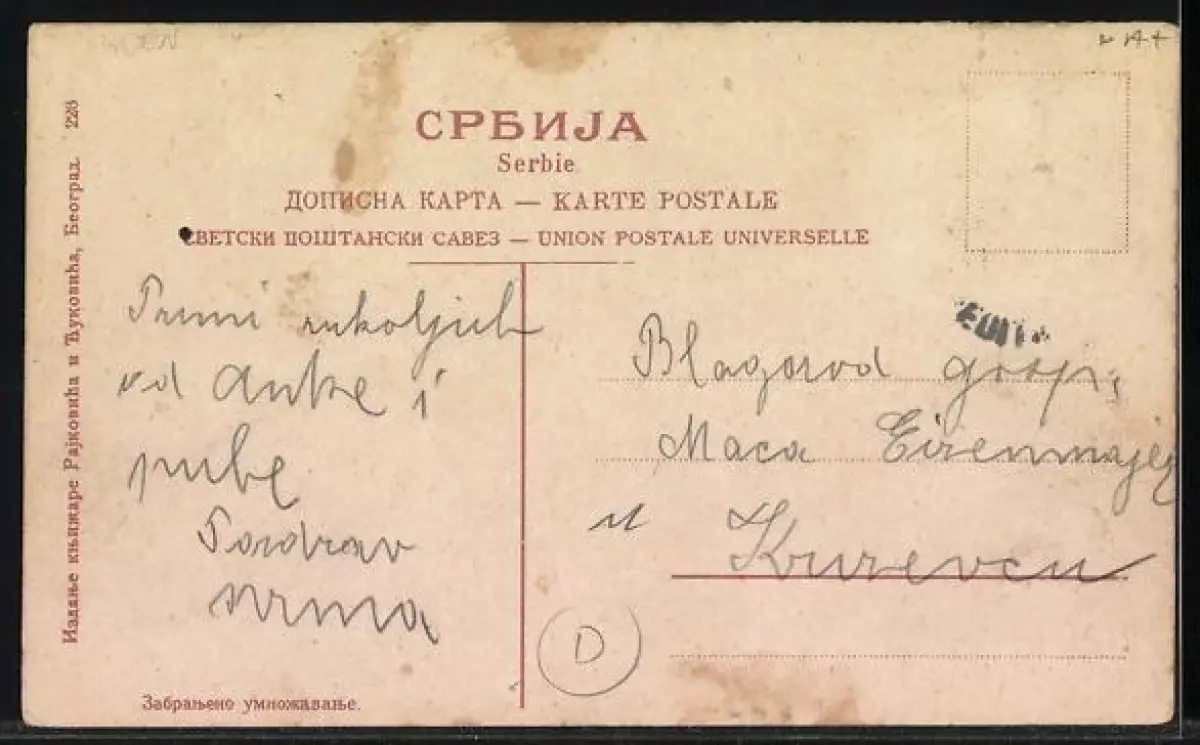 СРБИЈА
Serbie
ДОПИСНА КАРТА — KARTE POSTALE
СВЕТСКИ ПОШТАНСКИ САВЕЗ — UNION POSTALE UNIVERSELLE
Издање књижаре Рајковића и Ћуковића, Београд. 226
Primi rukoljub
od Anke i
Pozdrav
svima
Blagorod gospi
Maca Eizenmajer
u Kruševcu
D
Забрањено умножавање.